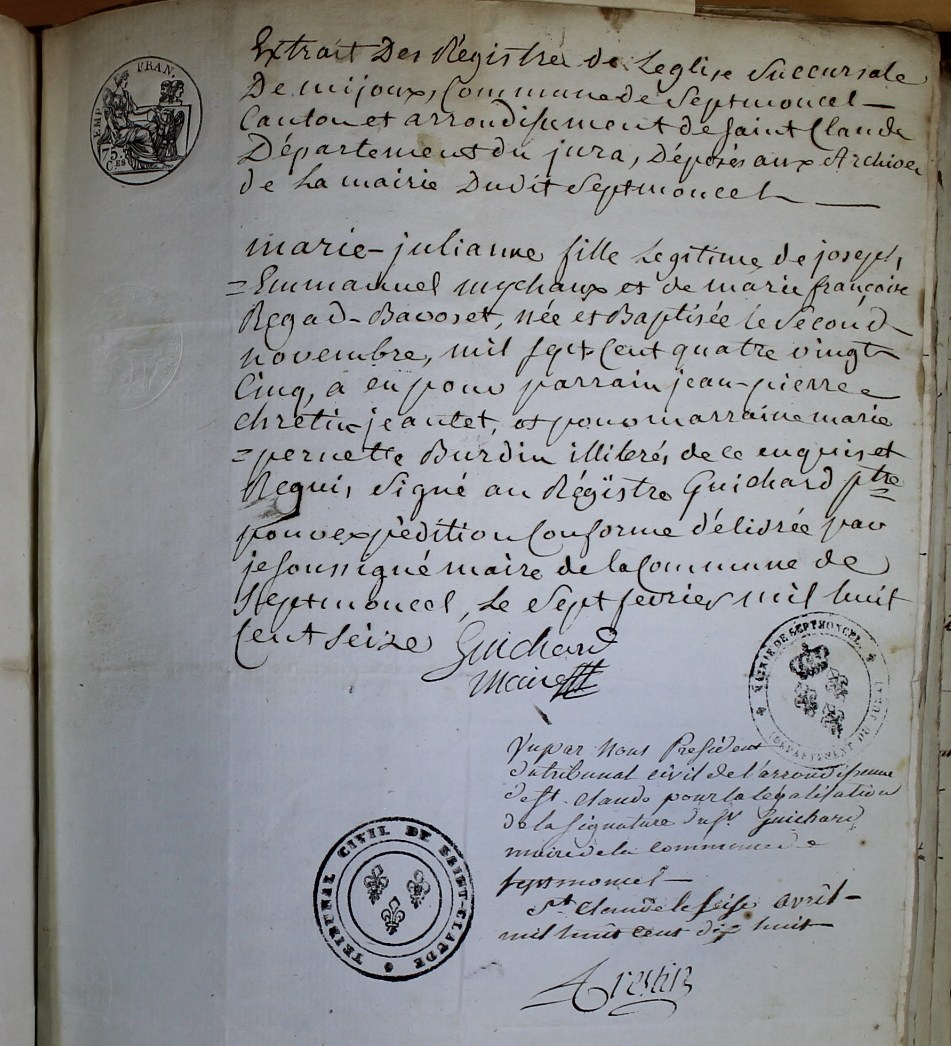 EMP. FRAN.
75.
C.ES
Extrait Des Régistres de Leglise Succursale
De mijoux, Commune de Septmoncel –
Canton et arrondissement de Saint Claude
Département du jura, Déposés aux Archives
de La mairie Dudit Septmoncel —
marie-julianne fille Legitime de joseph,
=Emmanuel mychaux et de marie françoise
Regad-Bavoset, née et Baptisée le Second
novembre, mil sept Cent quatre vingt
Cinq, à eu pour parrain jean-pierre
chretin jeantet, et pour marraine marie
=pernette Burdin illiterés de ce enquis et
Requis Signé au Régistre Guichard ptre
pour expédition Conforme délivrée par
je soussigné maire de la Commune de
Septmoncel, Le Sept fevrier mil huit
Cent Seize Guichard
maire
MAIRIE DE SEPTMONCEL
(DÉPARTEMENT DU JURA)
Vu par Nous President
du tribunal civil de l'arrondissement
de St. Claude pour la legalisation
de la Signature du Sr. Guichard
maire de la commune de
septmoncel –
St. Claude le seise avril –
mil huit cent dix huit
TRIBUNAL CIVIL DE SAINT-CLAUDE